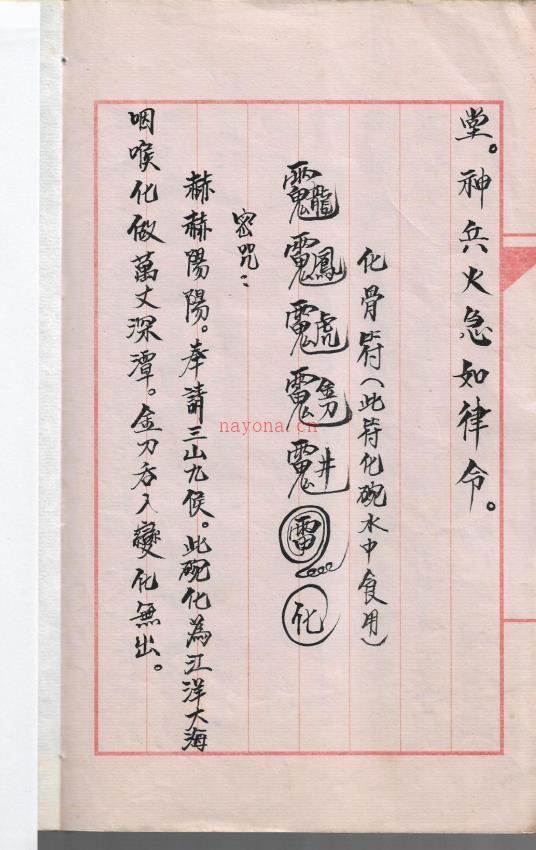 堂。神兵火急如律令。
化骨符(此符化碗水中食用)
密咒:
赫赫陽陽。奉請三山九候。此碗化為江洋大海
咽喉化做萬丈深潭。金刀吞入變化無出。
nayona.cn